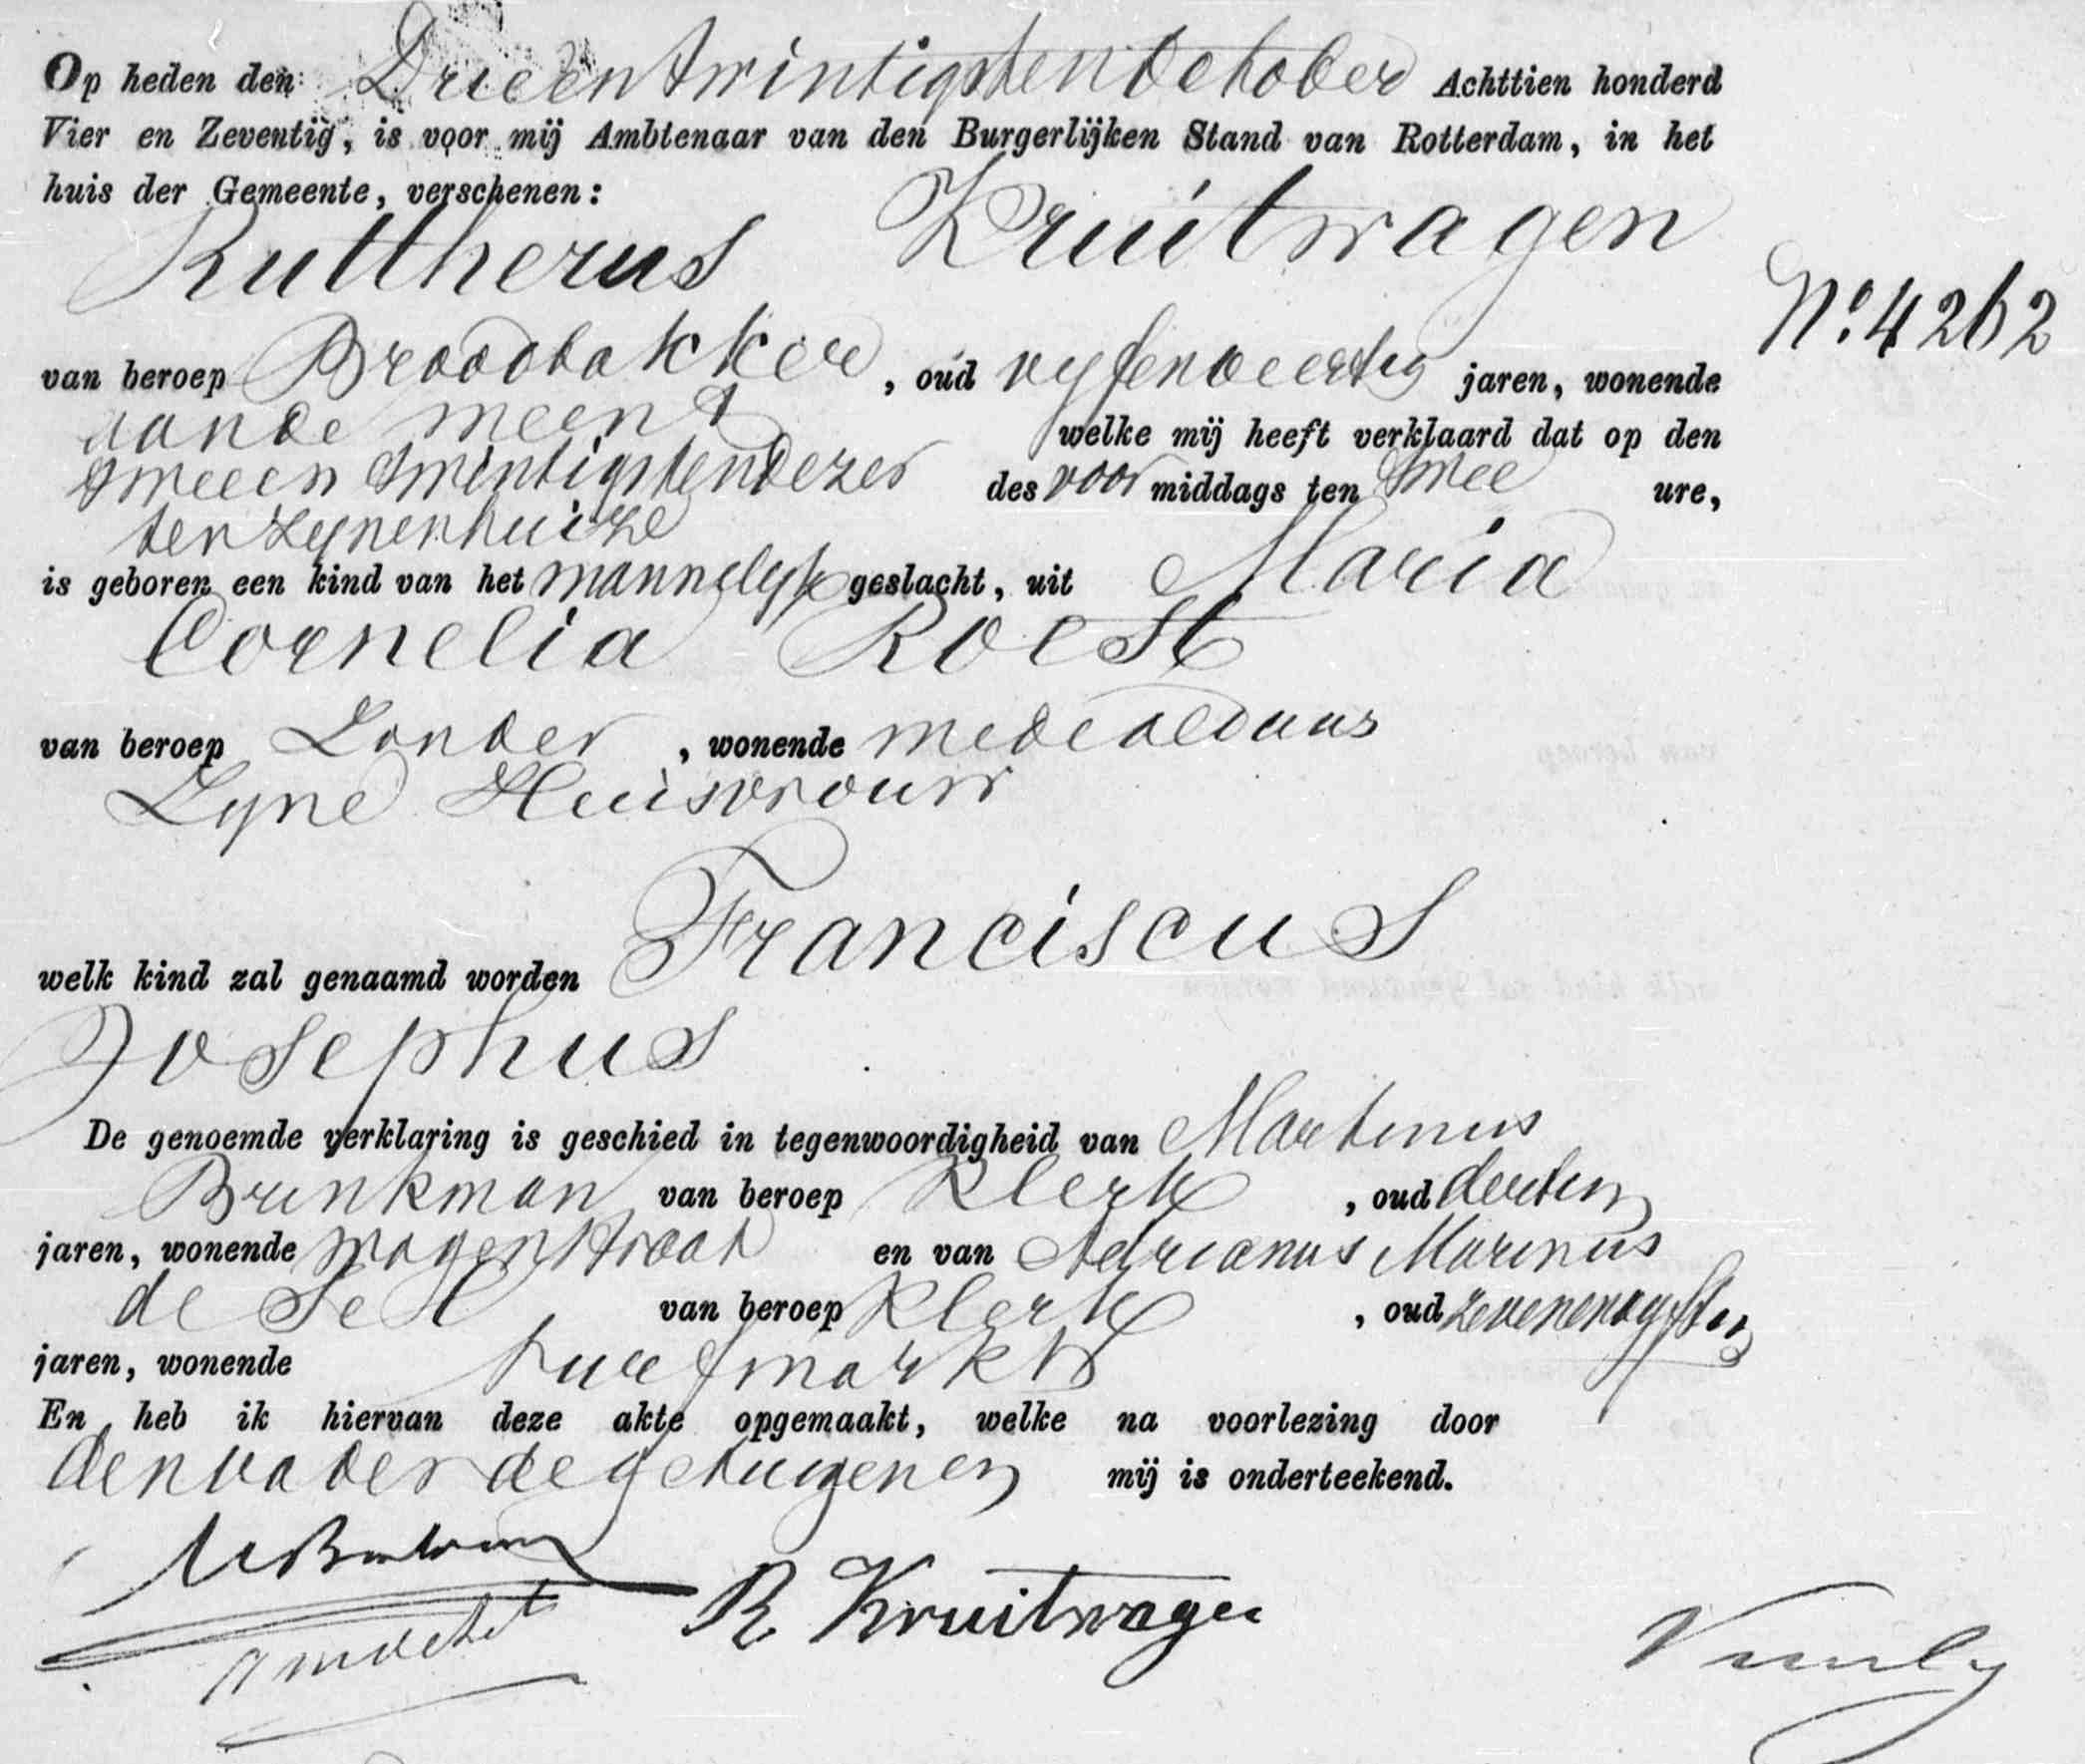 Op heden den Drieen twintigsten October Achttien honderd
Vier en Zeventig, is voor mij Ambtenaar van den Burgerlijken Stand van Rotterdam, in het
huis der Gemeente, verschenen:
Ruttherus Kruitwagen
No. 4262
van beroep Broodbakker, oud vyfenveertig jaren, wonende
aande meent welke mij heeft verklaard dat op den
tweeen twintigsten dezer des voor middags ten twee ure,
ten zynen huize
is geboren een kind van het mannelyk geslacht, uit Maria
Cornelia Roest
van beroep Zonder, wonende mede aldaar
Zyne Huisvrouw
welk kind zal genaamd worden Franciscus
Josephus
De genoemde verklaring is geschied in tegenwoordigheid van Martinus
Brinkman van beroep Klerk, oud dertig
jaren, wonende wagenstraat en van Adrianus Marinus
de van beroep Klerk, oud zevenenvyftig
jaren, wonende turfmarkt
En heb ik hiervan deze akte opgemaakt, welke na voorlezing door
den vader de getuigen en mij is onderteekend.
R Kruitwagen